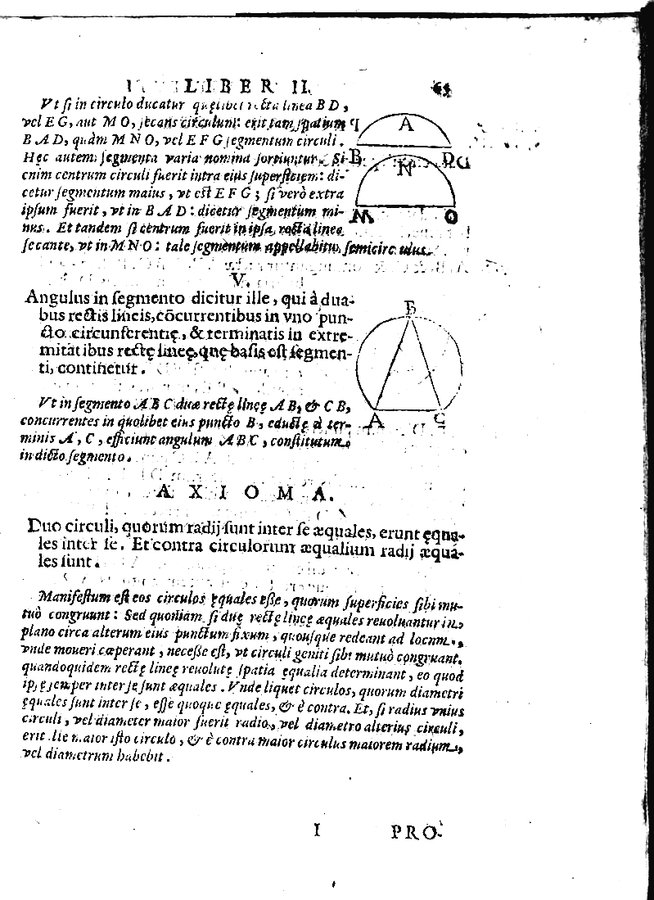 LIBER II. 65
Vt si in circulo ducatur quęlibet recta linea B D,
vel E G, aut M O, secans circulum: erit tam spatium
B A D, quàm M N O, vel E F G segmentum circuli.
Hęc autem segmenta varia nomina sortiuntur. Si
enim centrum circuli fuerit intra eius superficiem: di-
cetur segmentum maius, vt est E F G; si verò extra
ipsum fuerit, vt in B A D: dicetur segmentum mi-
nus. Et tandem si centrum fuerit in ipsa recta linea
secante, vt in M N O: tale segmentum appellabitur semicirculus.
A
B D
N
M O
V.
Angulus in segmento dicitur ille, qui à dua-
bus rectis lineis, cōcurrentibus in vno pun-
cto circunferentię, & terminatis in extre-
mitatibus rectę lineę, quę basis est segmen-
ti, continetur.
B
A C
Vt in segmento A B C duæ rectę lineę A B, & C B,
concurrentes in quolibet eius puncto B, eductę à ter-
minis A, C, efficiunt angulum A B C, constitutum
in dicto segmento.
A X I O M A.
Duo circuli, quorum radij sunt inter se æquales, erunt ęqua-
les inter se. Et contra circulorum æqualium radij æqua-
les sunt.
Manifestum est eos circulos ęquales esse, quorum superficies sibi mu-
tuò congruunt: Sed quoniam si duę rectę lineę æquales reuoluantur in
plano circa alterum eius punctum fixum, quousque redeant ad locum,
vnde moueri cæperant, necesse est, vt circuli geniti sibi mutuò congruant.
quandoquidem rectę lineę reuolutę spatia ęqualia determinant, eo quod
ipsę semper inter se sunt æquales. Vnde liquet circulos, quorum diametri
ęquales sunt inter se, esse quoque ęquales, & è contra. Et, si radius vnius
circuli, vel diameter maior fuerit radio, vel diametro alterius circuli,
erit ille maior isto circulo, & è contra maior circulus maiorem radium,
vel diametrum habebit.
I PRO-